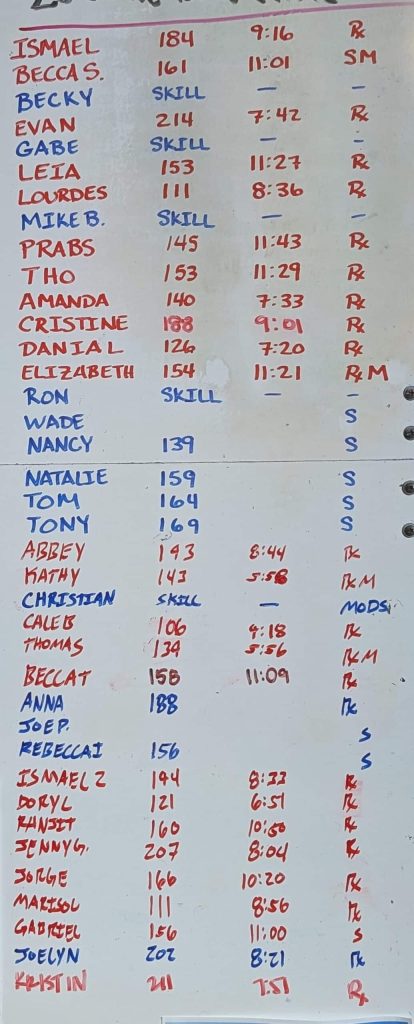 ISMAEL 184 9:16 Rx
BECCA S. 161 11:01 SM
BECKY SKILL — —
EVAN 214 7:42 Rx
GABE SKILL — –
LEIA 153 11:27 Rx
LOURDES 111 8:36 Rx
MIKE B. SKILL — –
PRABS 145 11:43 Rx
THO 153 11:29 Rx
AMANDA 140 7:33 Rx
CRISTINE 188 9:01 Rx
DANIAL 126 7:20 Rx
ELIZABETH 154 11:21 RxM
RON SKILL — –
WADE S
NANCY 139 S
NATALIE 159 S
TOM 164 S
TONY 169 S
ABBEY 143 8:44 Rx
KATHY 143 5:58 RxM
CHRISTIAN SKILL — MODS
CALEB 106 9:18 Rx
THOMAS 134 5:56 RxM
BECCA T 158 11:09 Rx
ANNA 188 Rx
JOE P. S
REBECCA I 156 S
ISMAEL 2 194 8:33 Rx
DORYL 121 6:51 Rx
RANJIT 160 10:50 Rx
JENNY G. 207 8:04 Rx
JORGE 166 10:20 Rx
MARISOL 111 8:56 Rx
GABRIEL 156 11:00 S
JOELYN 202 8:21 Rx
KRISTIN 211 7:51 Rx